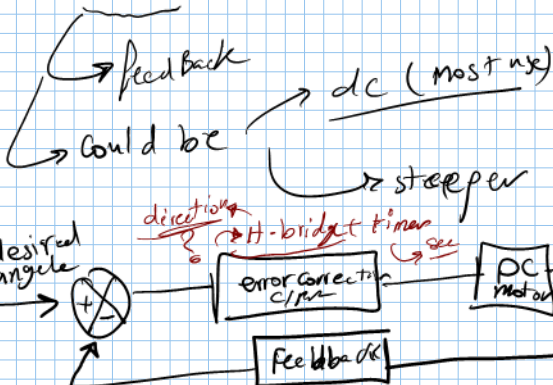 feedback
dc (most use)
could be
steeper
direction
?
H-bridge + timer
see
desired
angele
+ -
error correction
DC
motor
Feedback